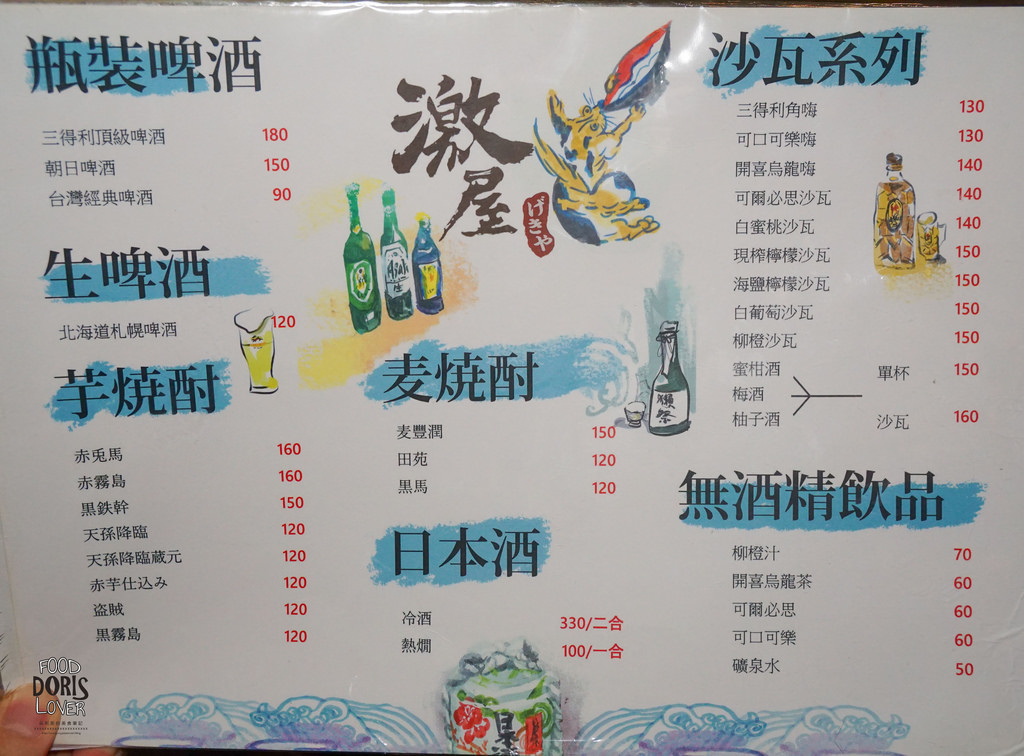 瓶裝啤酒
三得利頂級啤酒 180
朝日啤酒 150
台灣經典啤酒 90
生啤酒
北海道札幌啤酒 120
芋焼酎
赤兎馬 160
赤霧島 160
黒鉄幹 150
天孫降臨 120
天孫降臨蔵元 120
赤芋仕込み 120
盗賊 120
黒霧島 120
激屋
げきや
麦焼酎
麦豐潤 150
田苑 120
黒馬 120
獺祭
日本酒
冷酒 330/二合
熱燗 100/一合
沙瓦系列
三得利角嗨 130
可口可樂嗨 130
開喜烏龍嗨 140
可爾必思沙瓦 140
白蜜桃沙瓦 140
現榨檸檬沙瓦 150
海鹽檸檬沙瓦 150
白葡萄沙瓦 150
柳橙沙瓦 150
蜜柑酒 單杯 150
梅酒
柚子酒 沙瓦 160
無酒精飲品
柳橙汁 70
開喜烏龍茶 60
可爾必思 60
可口可樂 60
礦泉水 50
FOOD
DORIS
LOVER